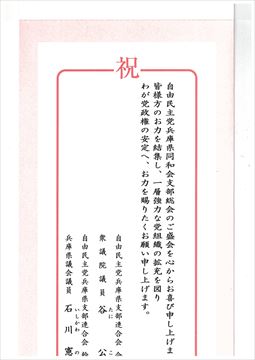 祝
自由民主党兵庫県同和会支部総会のご盛会を心からお喜び申し上げま
皆様方のお力を結集し、一層強力な党組織の拡充を図り
わが党政権の安定へ、お力を賜りたくお願い申し上げます。
自由民主党兵庫県支部連合会
衆議院議員 谷 公
たに こ
自由民主党兵庫県支部連合会
兵庫県議会議員 石川憲
いしかわ の